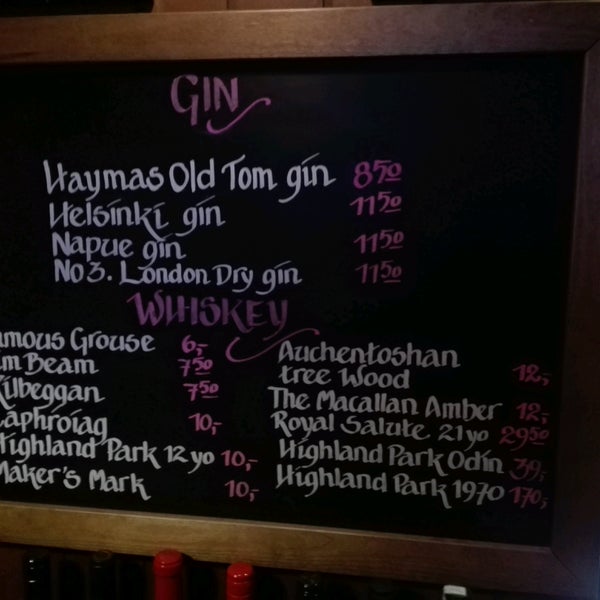 GIN
Haymas Old Tom gin 8 50
Helsinki gin 11 50
Napue gin 11 50
No 3. London Dry gin 11 50
WIHSKEY
amous Grouse 6,-
im Beam 7 50
Kilbeggan 7 50
Laphróiag 10,-
Highland Park 12 yo 10,-
Maker's Mark 10,-
Auchentoshan
tree Wood 12,-
The Macallan Amber 12,-
Royal Salute 21 yo 29 50
Highland Park Odin 39,-
Highland Park 1970 170,-